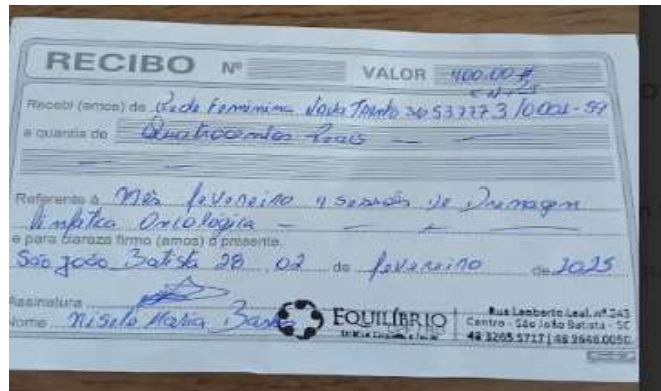 RECIBO Nº VALOR 400,00 #
CNPJ
Recebi (emos) de Rede Feminina Nova Trento
a quantia de Quatrocentos Reais
Referente a Mês fevereiro 4 sessões de Drenagem
linfatica Oncologica
e para clareza firmo (amos) o presente.
São João Batista 28 02 de fevereiro de 2025
Assinatura
Nome Maria
EQUILÍBRIO
Rua Leoberto Leal, nº 243
Centro - São João Batista - SC
48 3265.5717 | 48 9648.0050